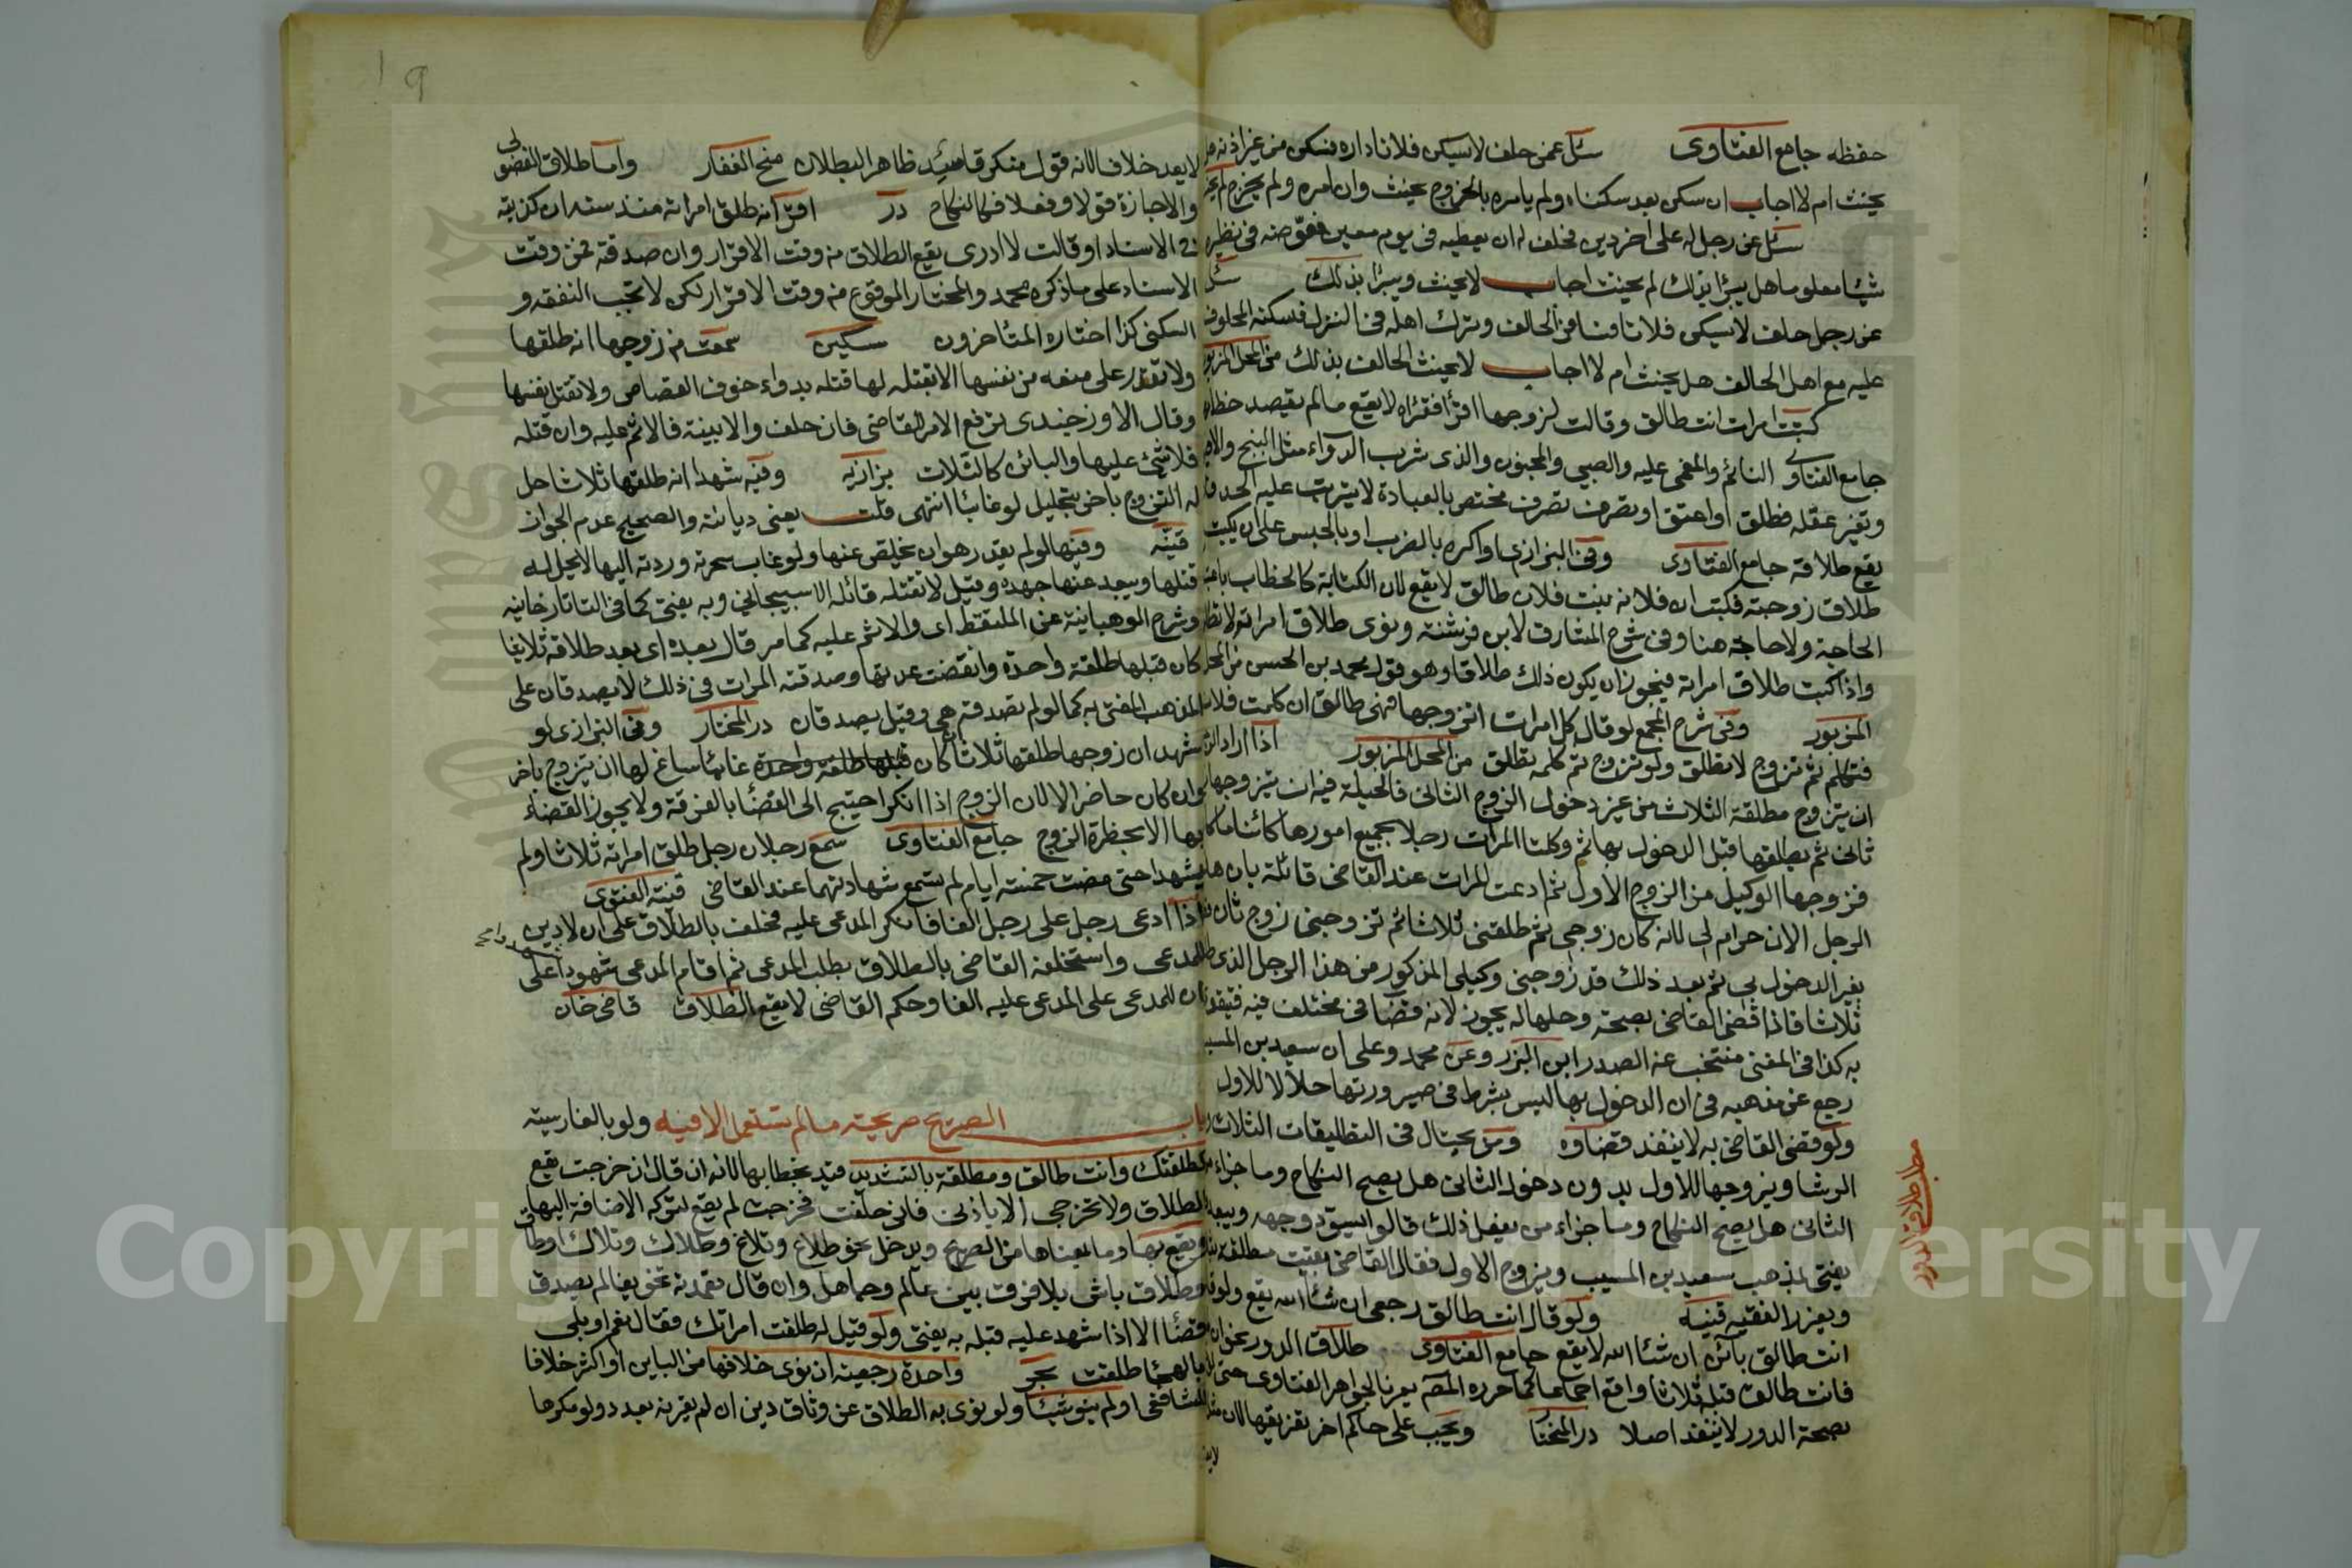 حفظه جامع الفتاوى سئل عمن حلف لا يسكن فلانا داره فسكن من غير اذنه هل
يحنث ام لا اجاب ان سكن بعد سكناه ولم يامره بالخروج يحنث وان امره ولم يخرج لم يحنث
سئل عن رجل له على اخر دين فحلف له ان يعطيه في يوم معين فعوضه في نظيره
شيئا معلوما هل يبرا بذلك لم يحنث اجاب لا يحنث ويبرا بذلك سئل
عن رجل حلف لا يسكن فلانا الحالف وترك اهله في المنزل فسكنه المحلوف
عليه مع اهل الحالف هل يحنث ام لا اجاب لا يحنث الحالف بذلك من المحل المزبور
كتبت امرات انت طالق وقالت لزوجها اقرأ فقراه لا يقع ما لم يقصد خطابها
جامع الفتاوى النائم والمغمى عليه والصبي والمجنون والذي شرب الدواء مثل البنج
وتغير عقله فطلق او اعتق او تصرف تصرف مختص بالعبادة لا يترتب عليه الحد
يقع طلاقه جامع الفتاوى وفي البزازي اواكره بالضرب او بالحبس على ان يكتب
طلاق زوجته فكتب ان فلانه بنت فلان طالق لا يقع لان الكتابة كالخطاب باعتبار
الحاجة ولا حاجة هنا وفي شرح المشارق لابن فرشته ونوى طلاق امراته لا تطلق
واذا كتب طلاق امراته فيجوز ان يكون ذلك طلاقا وهو قول محمد بن الحسن من المحل
المزبور وفي شرح المجمع لو قال كل امرات اتزوجها فهي طالق ان كلمت فلانا
فتكلم ثم تزوج لا تطلق ولو تزوج ثم كلمه تطلق من المحل المزبور اذا اراد الزوج
ان يتزوج مطلقة الثلاث من غير دخول الزوج الثاني فالحيلة فيه ان يتزوجها
ثاني ثم يطلقها قبل الدخول بها ثم وكلت المرات رجلا بجميع امورها كائنا ما كان
فزوجها الوكيل من الزوج الاول ثم ادعت المرات عند القاضي قائلة بان هذا
الرجل الان حرام لي لانه كان زوجي ثم طلقني ثلاثا ثم تزوجني زوج ثان
بغير الدخول بي ثم بعد ذلك قد زوجني وكيلي المذكور من هذا الرجل الذي
ثلاثا فاذا قضى القاضي بصحته وحلها له يجوز لانه قضا في مختلف فيه فينفذ
به كذا في المغني منتخب عنه الصدر ابن البزر وعن محمد وعلى ان سعيد بن المسيب
رجع عن مذهبه في ان الدخول بها ليس بشرط في صيرورتها حلالا للاول
ولو قضى القاضي به لا ينفذ قضاوه ومن يحتال في التطليقات الثلاث
الرشا ويزوجها للاول بدون دخول الثاني هل يصح النكاح وما جزاء
الثاني هل يصح النكاح وما جزاء من يفعل ذلك قالوا يسود وجهه ويبعد
يفتي بمذهب سعيد بن المسيب ويزوج الاول فقال القاضي بقيت مطلقة
ويعزر الفقيه قنيه ولو قال انت طالق رجعي ان شا الله يقع ولو قال
انت طالق بائن ان شا الله لا يقع جامع الفتاوى طلاق الدور
فانت طالق قبله ثلاثا واقع اجماعا كما حرره المص يعزينا لجواهر الفتاوى حتى
بصحة الدور لا ينفذ اصلا در المختار ويجب على حاكم اخر تفريقها لان مثل
مطلب طلاق الدور
لا يعد خلافا لانه قول منكر ظاهر البطلان منح الغفار واما طلاق الفضولي
والاجازة قولا وفعلا فكالنكاح در اقر انه طلق امراته منذ سنه ان كذبته
في الاسناد او قالت لا ادرى يقع الطلاق من وقت الاقرار وان صدقته فمن وقت
الاسناد على ما ذكره محمد والمختار الموقوع من وقت الاقرار لكن لا تجب النفقه و
السكنى كذا اختاره المتاخرون سكين سمعت من زوجها انه طلقها
ولا تقدر على منعه من نفسها الا بقتله لها قتله بدواء خوف القصاص ولا تقتل نفسها
وقال الاوزجندي ترفع الامر للقاضي فان حلف والا بينة فالاثم عليه وان قتله
فلا شيء عليها والبائن كالثلاث بزازيه وفيه شهدا انه طلقها ثلاثا حل
له التزوج باخر بتحليل لو غائبا انتهى قلت يعني ديانة والصحيح عدم الجواز
قنيه وفيها لو لم يقدر هو ان يخلص عنها ولو غاب سحرته وردته اليها لا يحل له
قتلها ويبعد عنها جهده وقيل لا تقتله قائله الاسبيجابي وبه يفتى كما في التاتارخانيه
وشرح الوهبانية عن الملتقط اي والاثم عليه كما مر قال بعده اي بعد طلاقه ثلاثا
كان قبلها طلقة واحدة وانقضت عدتها وصدقته المرات في ذلك لا يصدقان على
المذهب المفتى به كما لو لم تصدقه هي وقيل يصدقان در المختار وفي البزازي لو
شهد ان زوجها طلقها ثلاثا ان كان قبلها طلقة واحدة غائبا ساغ لها ان تتزوج باخر
وان كان حاضرا لا لان الزوج اذا انكر احتيج الى القضا بالفرقة ولا يجوز القضاء
بها الا بحضرة الزوج جامع الفتاوى سمع رجلان رجل طلق امراته ثلاثا ولم
يشهدا حتى مضت خمسة ايام لم تسمع شهادتهما عند القاضي قنية الفتوى
اذا ادعى رجل على رجل الفا فانكر المدعى عليه فحلف بالطلاق على ان لا دين
للمدعى واستحلفه القاضي بالطلاق بطلب المدعى ثم اقام المدعى شهودا على
ان للمدعى على المدعى عليه الفا وحكم القاضي لا يقع الطلاق قاضي خان
باب الصريح صريحته ما لم تستعمل الا فيه ولو بالفارسيته
كطلقتك وانت طالق ومطلقة بالتشديد قيد بخطابها لانه ان قال ان خرجت يقع
الطلاق ولا تخرجي الا باذني فاني حلفت فخرجت لم يقع لتركه الاضافة اليها
ويقع بها وما بمعناها من الصريح ويدخل نحو طلاغ وتلاغ وطلاك وتلاك
وطلاق باش بلا فرق بين عالم وجاهل وان قال تعمدته تخويفا لم يصدق
قضا الا اذا شهد عليه قبله به يفتى ولو قيل له طلقت امراتك فقال نعم او بلى
بالهجا طلقت بحر واحدة رجعية ان نوى خلافها من البائن او اكثر خلافا
للشافعي او لم ينو شيئا ولو نوى به الطلاق عن وثاق دين ان لم يقرنه بعدد ولو مكرها